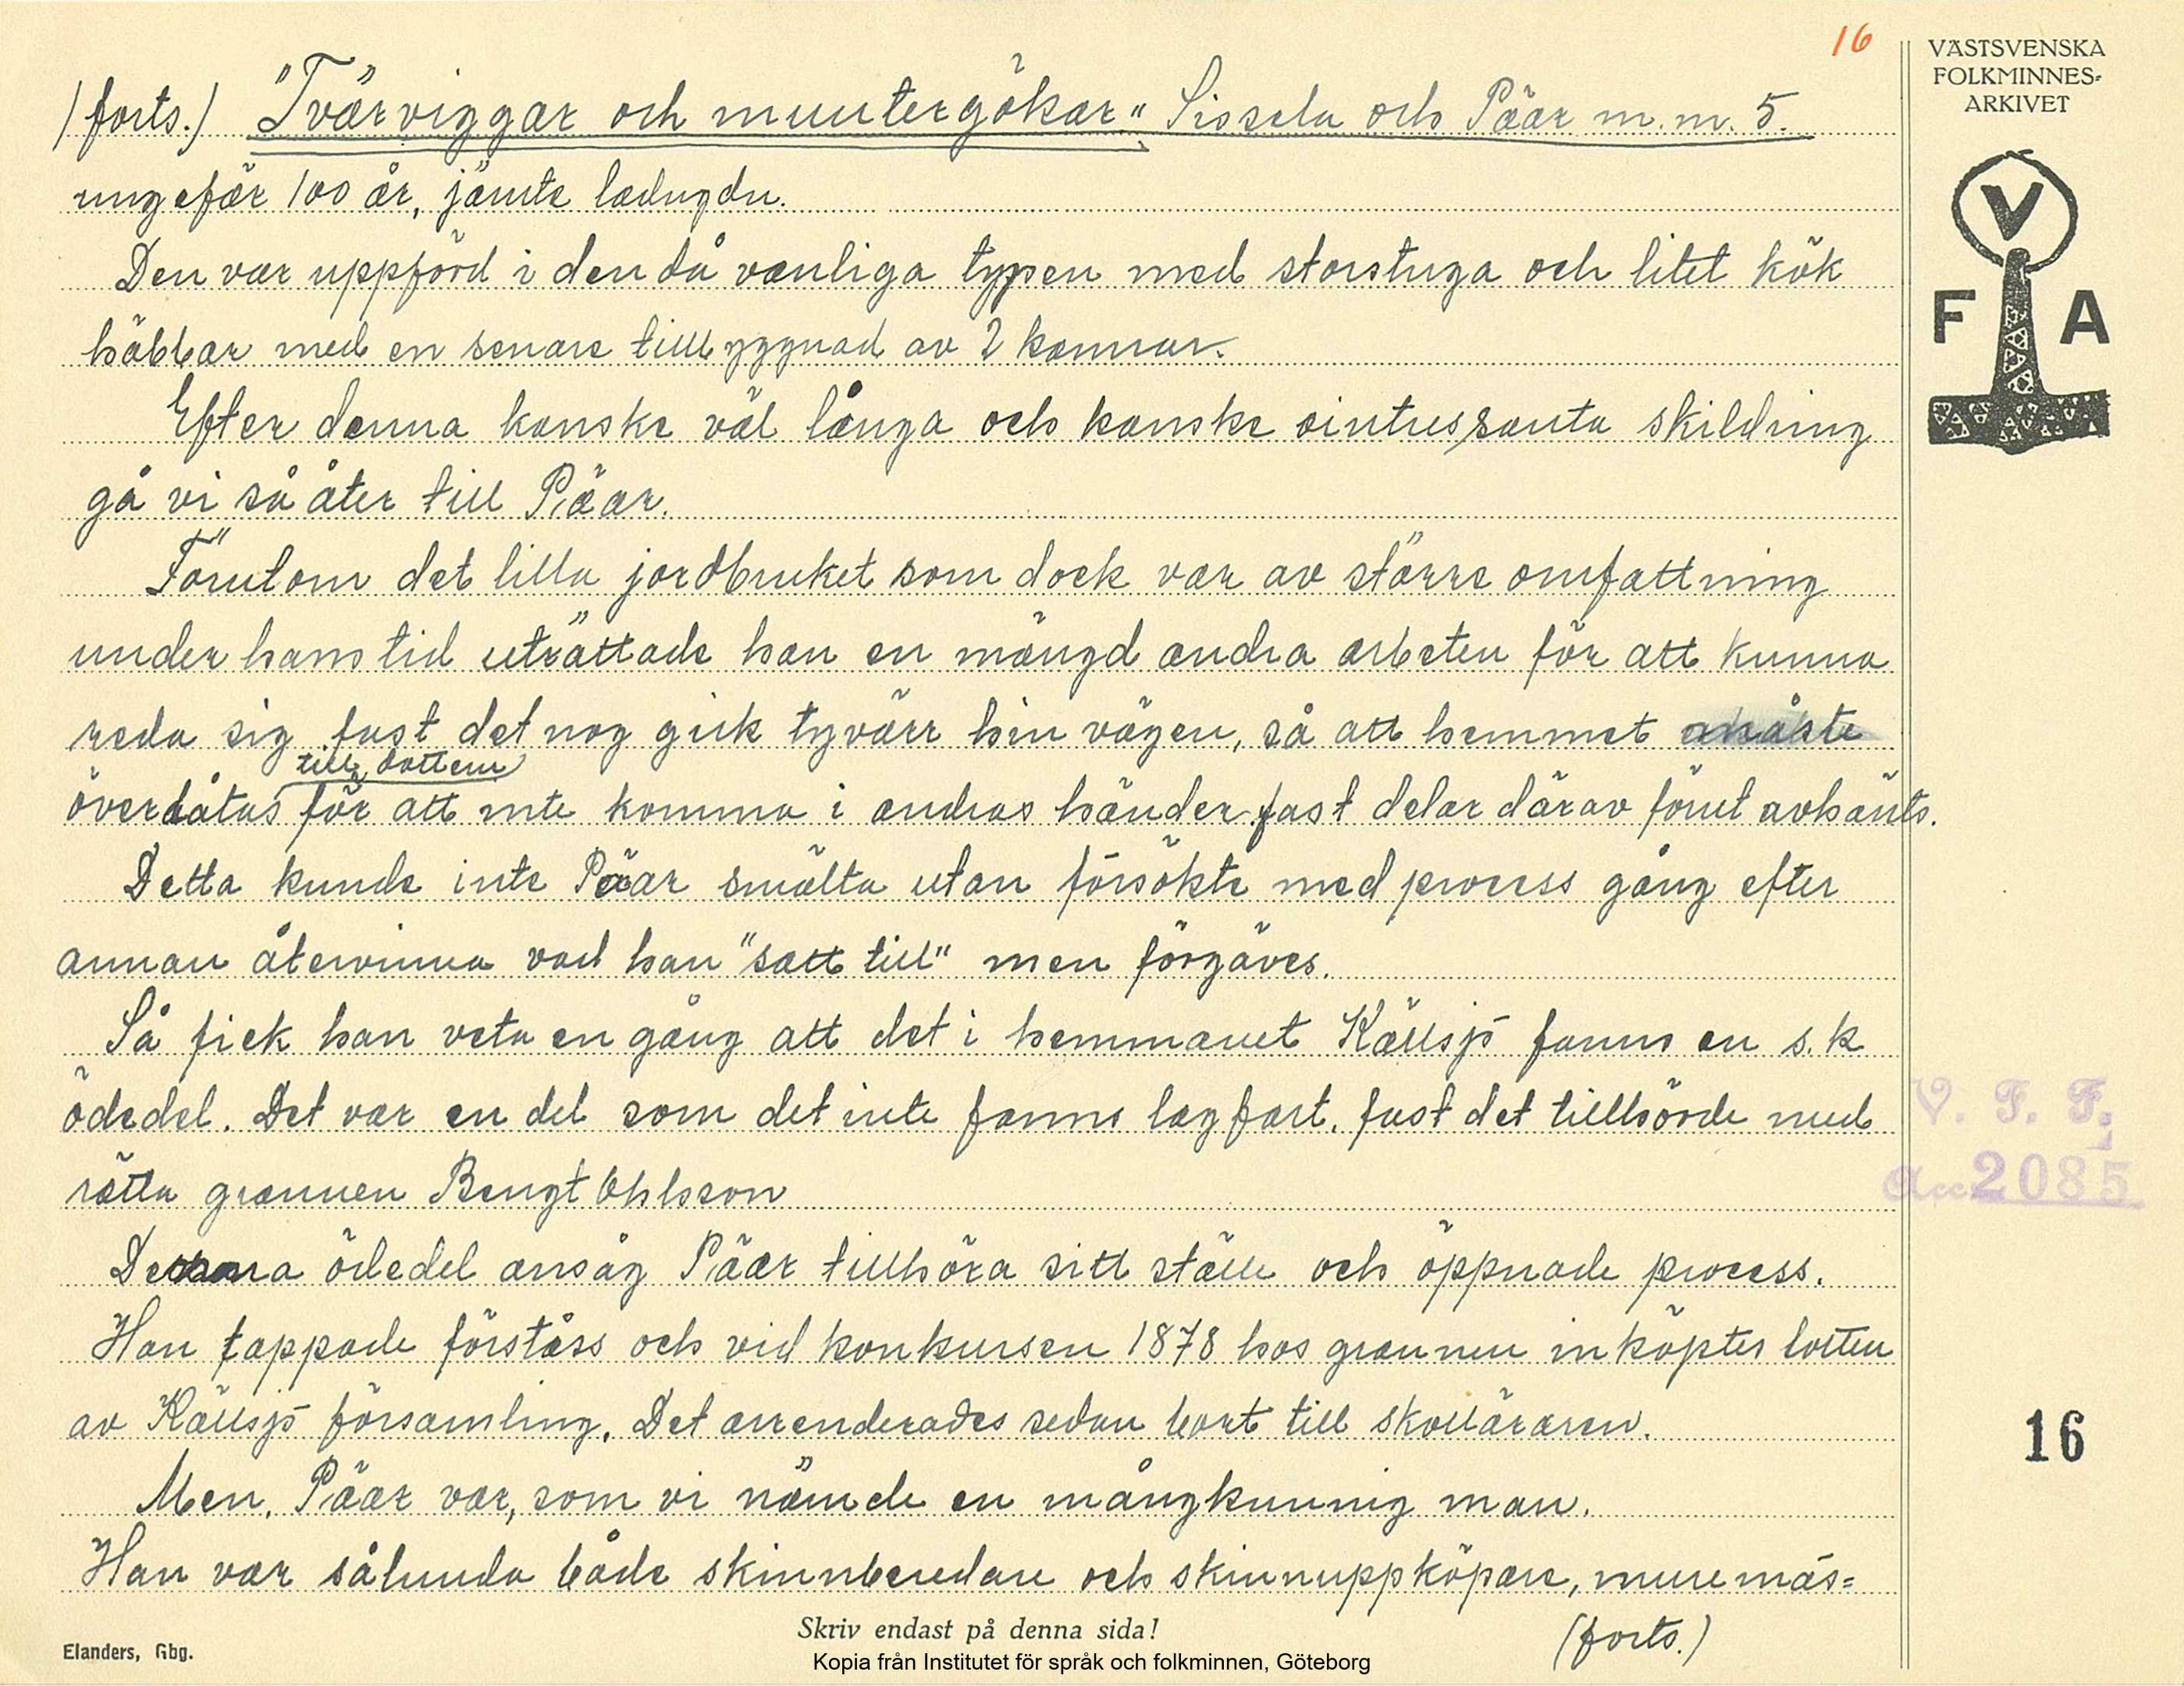 16
VÄSTSVENSKA
FOLKMINNES-
ARKIVET
V
F A
/forts./ "Tvärviggar och muntergökar" Sissela och Päar m.m. 5.
ungefär 100 år, jämte ladugdn.
Den var uppförd i den då vanliga typen med storstuga och litet kök
häbbar med en senare tillbyggnad av 2 kamrar.
Efter denna kanske väl långa och kanske ointressanta skildring
gå vi så åter till Pääar.
Förutom det lilla jordbruket som dock var av större omfattning
under hans tid uträttade han en mängd andra arbeten för att kunna
reda sig fast det nog gick tyvärr hin vägen, så att hemmet måste
till dottern
överlåtas för att inte komma i andras händer fast delar därav förut avhänts.
Detta kunde inte Päar smälta utan försökte med process gång efter
annan återvinna vad han "satt till" men förgäves.
Så fick han veta en gång att det i hemmanet Källsjö fanns en s.k
ödedel. Det var en del som det inte fanns lagfart, fast det tillhörde med
rätta grannen Bengt Ohlsson
Denna ödedel ansåg Pääar tillhöra sitt ställe och öppnade process.
Han tappade förståss och vid konkursen 1878 hos grannen inköptes lotten
av Källsjö församling. Det arrenderades sedan bort till skolläraren.
Men, Pääar var, som vi nämde en mångkunnig man.
Han var sålunda både skinnberedare och skinnuppköpare, muremäs=
(forts.)
V. F. F.
Acc 2085
16
Skriv endast på denna sida!
Elanders, Gbg.
Kopia från Institutet för språk och folkminnen, Göteborg